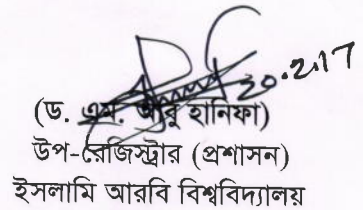 20.2.17
(ড. এম. আবু হানিফা)
উপ-রেজিস্ট্রার (প্রশাসন)
ইসলামি আরবি বিশ্ববিদ্যালয়